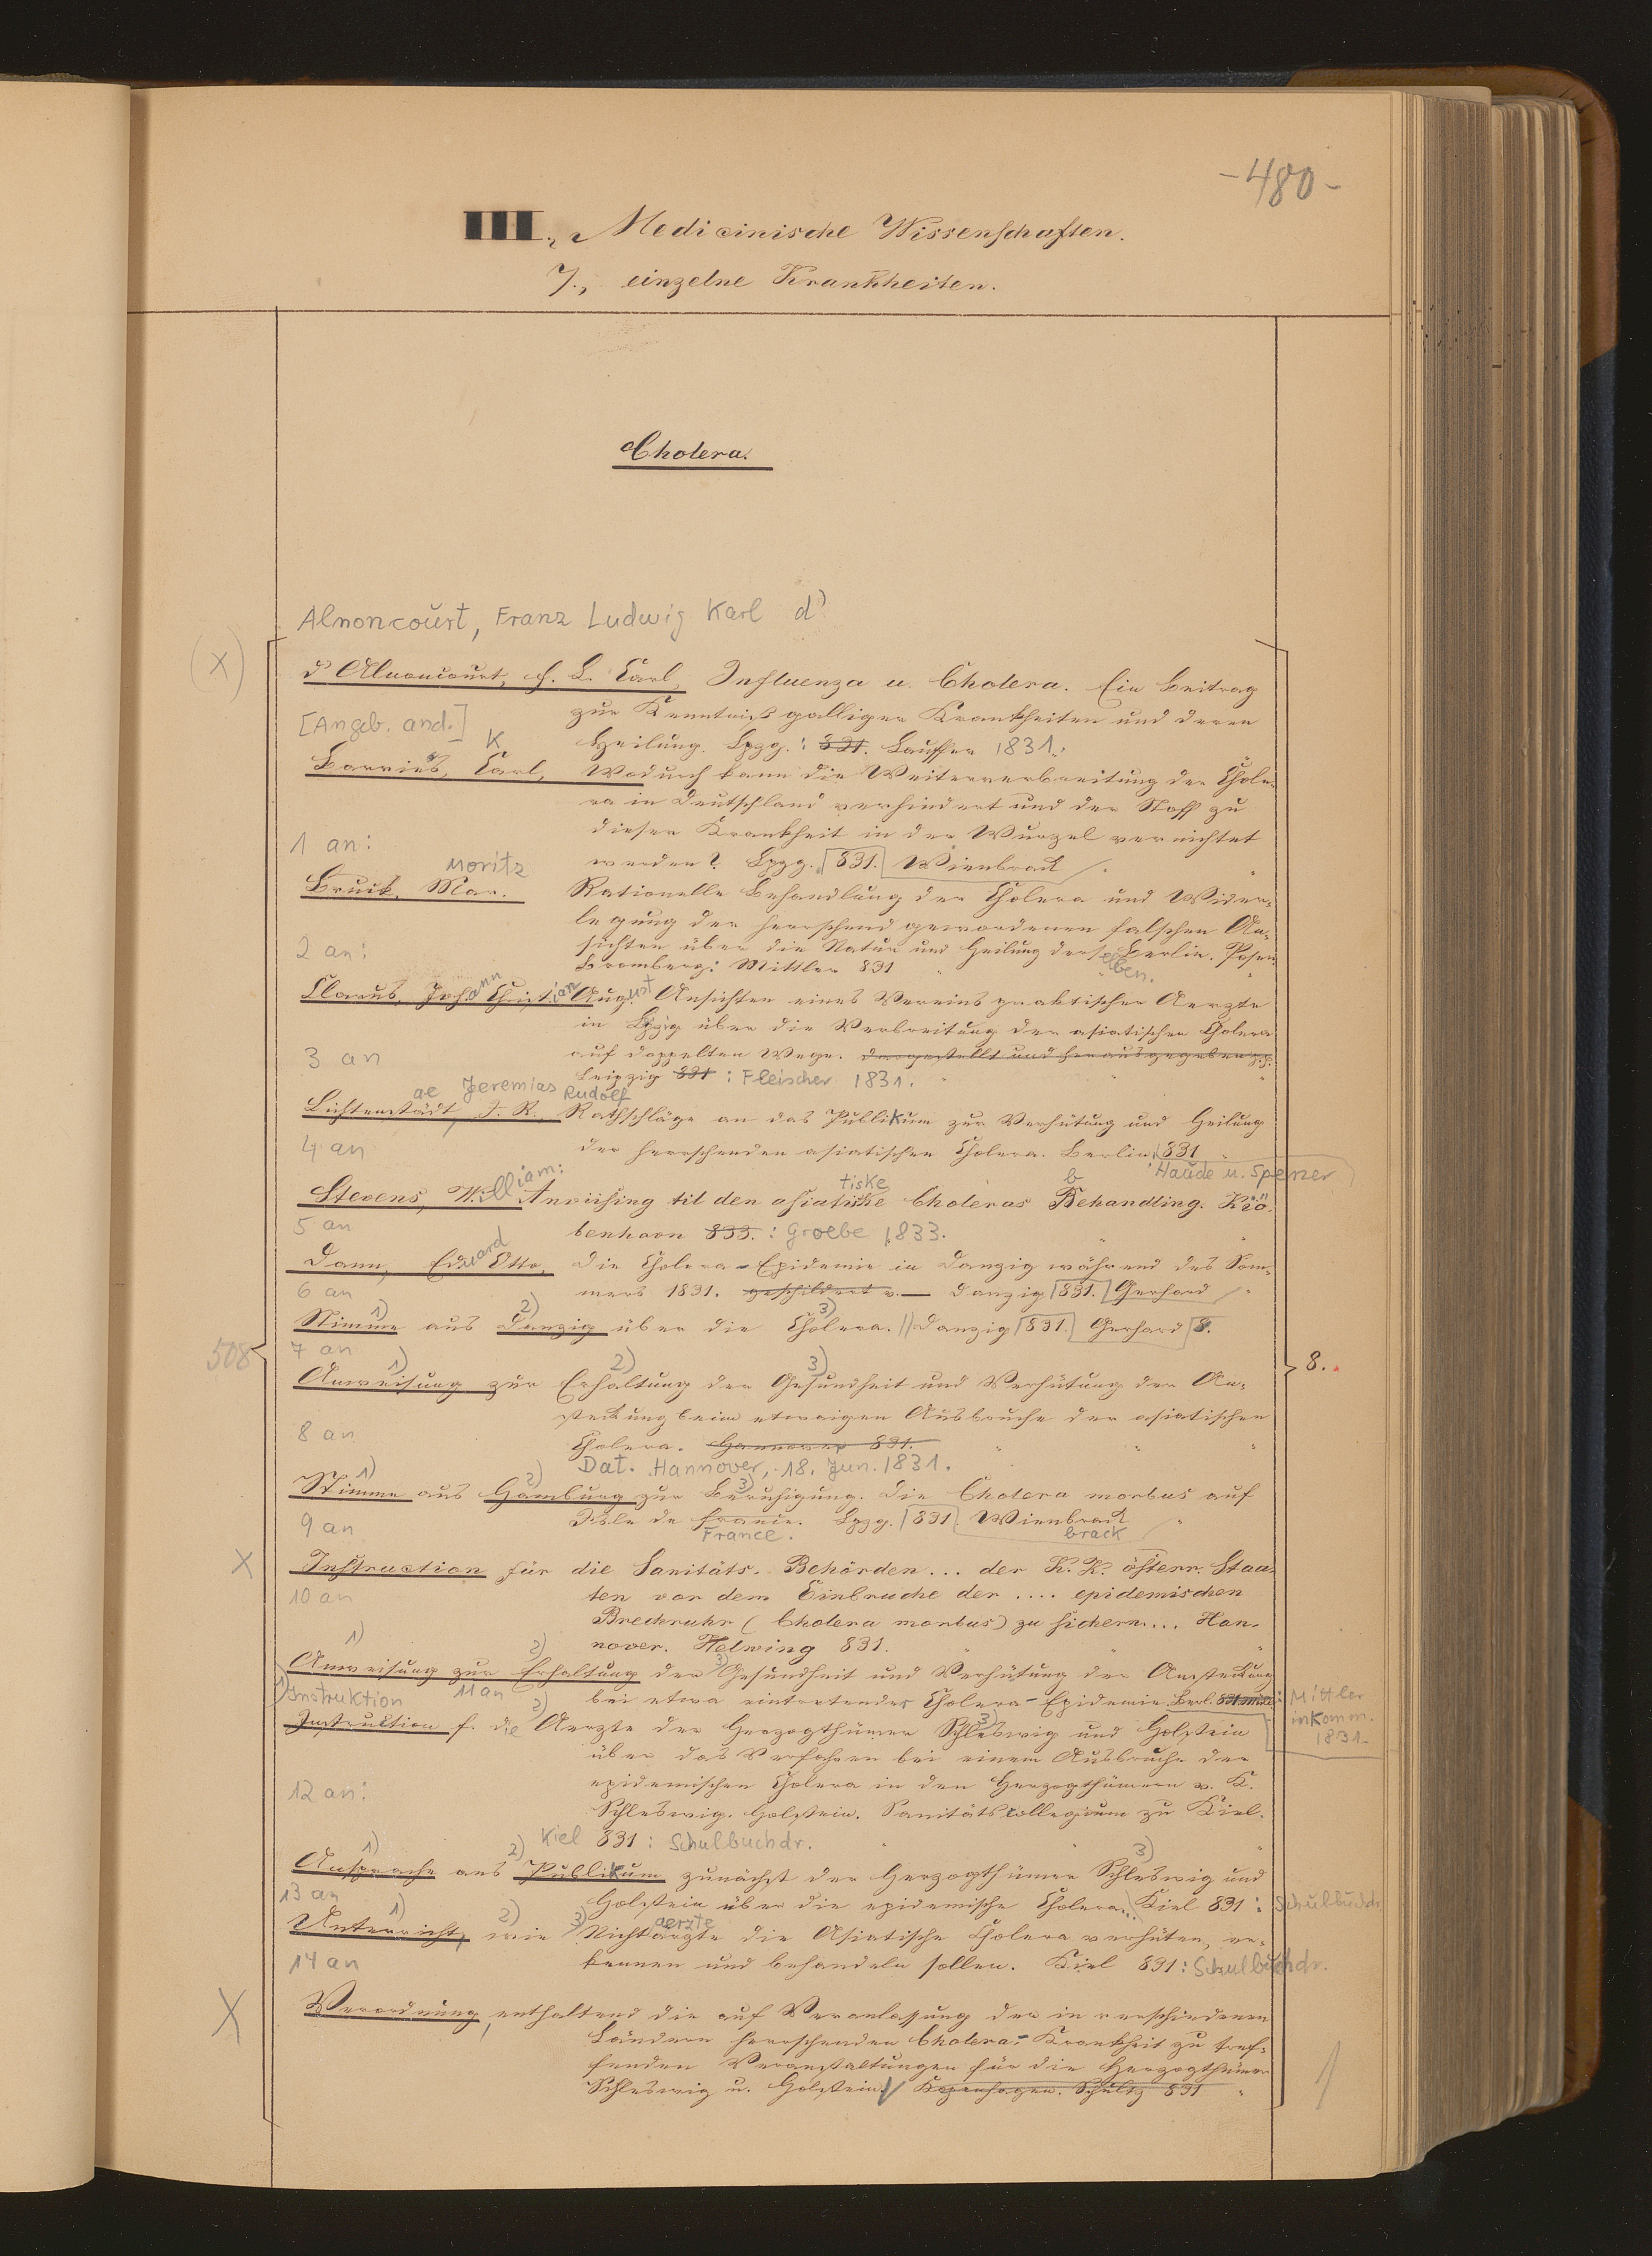 -480-
III., Medicinische Wissenschaften.
7., einzelne Krankheiten.
Cholera.
Alnoncourt, Franz Ludwig Karl d'
(X)
d'Alnoncourt, F. L. Carl, Influenza u. Cholera. Ein Beitrag
zur Kenntniß galliger Krankheiten und deren
[Angeb. and.]
Heilung. Lpzg.: 831. Lauffer 1831.
K
Barries, Carl, Wodurch kann die Weiterverbreitung der Chole-
ra in Deutschland verhindert und der Stoff zu
dieser Krankheit in der Wurzel vernichtet
1 an:
werden? Lpzg. 831. Wienbrack
Moritz
Bruck, Mor. Rationelle Behandlung der Cholera und Wider-
legung der herrschend gewordenen falschen An-
2 an:
sichten über die Natur und Heilung derselben. Berlin. Posen.
Bromberg: Mittler 831
Clarus, Johann Christian August Ansichten eines Vereins praktischer Aerzte
in Lpzg über die Verbreitung der asiatischen Cholera
3 an
auf doppelten Wege. dargestellt und herausgegeben
Leipzig 831 : Fleischer 1831.
ae Jeremias Rudolf
Lichtenstädt, J. R. Rathschläge an das Publikum zur Verhütung und Heilung
4 an
der herrschenden asiatischen Cholera. Berlin, 831
Haude u. Spener
tiske b
Stevens, William: Anviising til den asiatiske Choleras Behandling. Kiö-
5 an
benhavn 833. : Groebe 1833.
Dann, Eduard Otto, Die Cholera-Epidemie in Danzig während des Som-
6 an
mers 1831. geschildert v. — Danzig 831. Gerhard
1) 2) 3)
Stimme aus Danzig über die Cholera. Danzig 831. Gerhard 8.
508
7 an
8.
1) 2) 3)
Anweisung zur Erhaltung der Gesundheit und Verhütung der An-
steckung beim etwaigen Ausbruche der asiatischen
8 an
Cholera. Hannover 831.
Dat. Hannover, 18. Jun. 1831.
1) 2) 3)
Stimme aus Hamburg zur Beruhigung. Die Cholera morbus auf
9 an
Isle de france. Lpzg. 831. Wienbrack
France. brack
X
Instruction für die Sanitäts-Behörden... der K. K. österr. Staa-
10 an
ten vor dem Einbruche der .... epidemischen
Brechruhr (Cholera morbus) zu sichern.... Han-
nover. Helwing 831.
1) 2) 3)
Anweisung zur Erhaltung der Gesundheit und Verhütung der Ansteckung
11 an
bei etwa eintretender Cholera-Epidemie Berl. 831
Mittler
in Komm.
1831.
1) Instruktion 2) 3)
Instruction f. die Aerzte der Herzogthümer Schleswig und Holstein
über das Verfahren bei einem Ausbruche der
epidemischen Cholera in den Herzogthümern v. K.
12 an:
Schleswig. Holstein. Sanitätscollegium zu Kiel.
Kiel 831: Schulbuchdr.
1) 2) 3)
Ansprache ans Publikum zunächst der Herzogthümer Schleswig und
13 an
Holstein über die epidemische Cholera... Kiel 831: Schulbuchdr.
1) 2) 3) aerzte
Unterricht, wie Nichtärzte die Asiatische Cholera verhüten, er-
14 an
kennen und behandeln sollen. Kiel 831: Schulbuchdr.
X
Verordnung, enthaltend die auf Veranlassung der in verschiedenen
Ländern herrschenden Cholera-Krankheit zu tref-
fenden Veranstaltungen für die Herzogthümer
Schleswig u. Holstein. Kopenhagen. Schultz 831
1